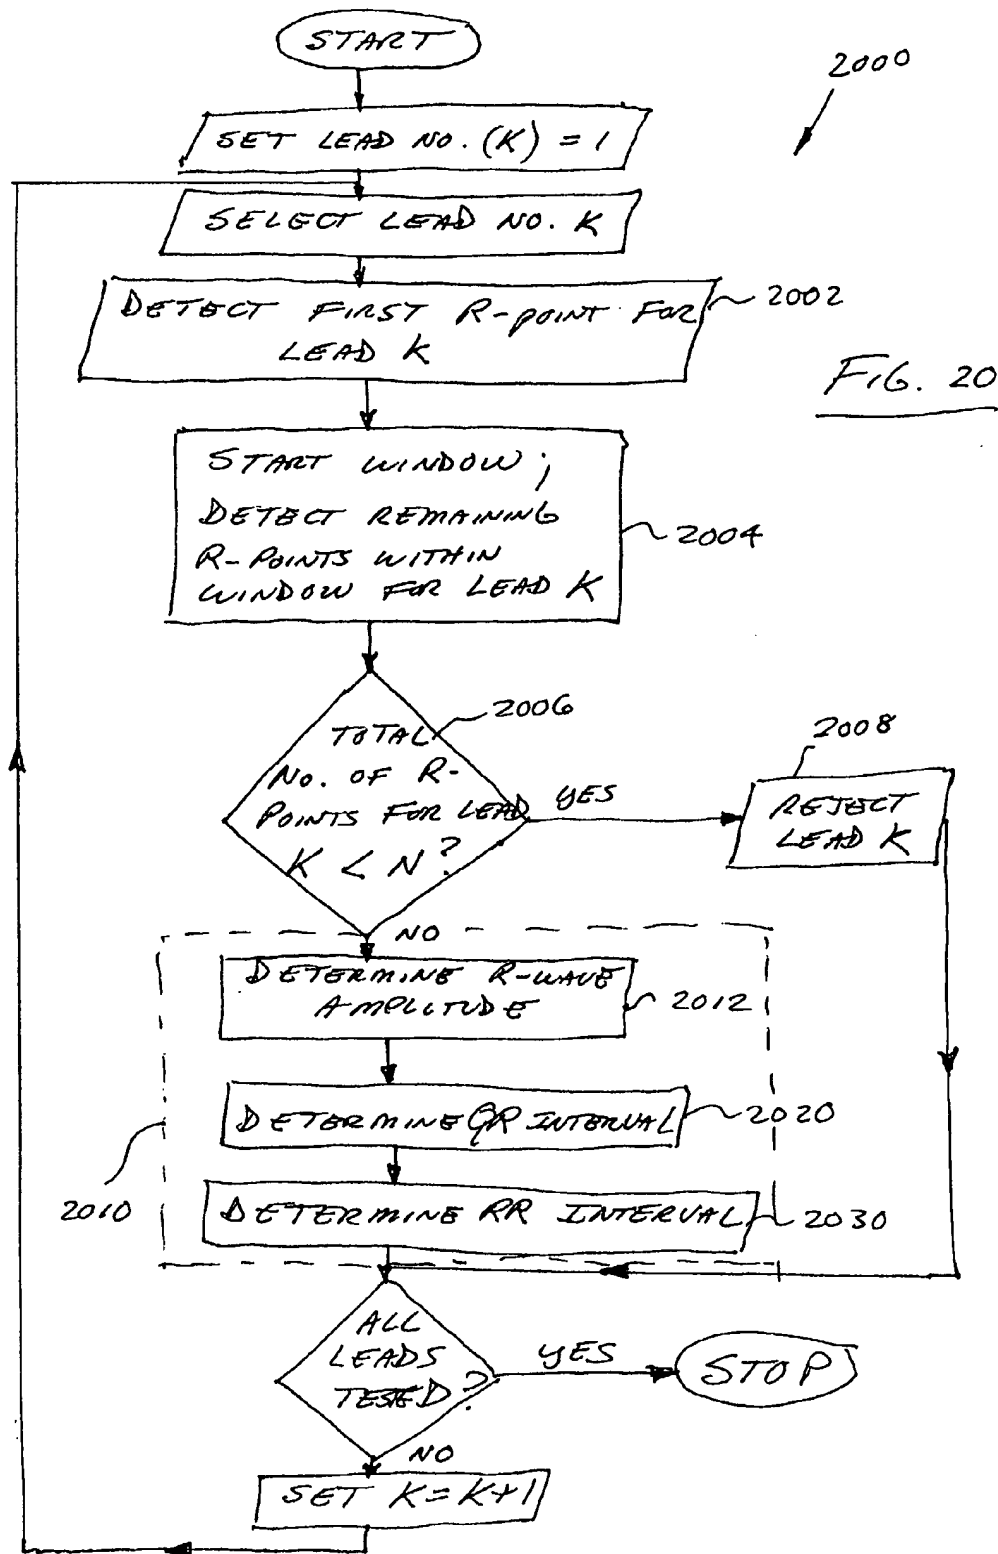 START
2000
SET LEAD NO. (K) = 1
SELECT LEAD NO. K
DETECT FIRST R-POINT FOR
LEAD K
2002
FIG. 20
START WINDOW;
DETECT REMAINING
R-POINTS WITHIN
WINDOW FOR LEAD K
2004
TOTAL
NO. OF R-
POINTS FOR LEAD
K < N?
2006
YES
2008
REJECT
LEAD K
NO
DETERMINE R-WAVE
AMPLITUDE
2012
DETERMINE QR INTERVAL
2020
2010
DETERMINE RR INTERVAL
2030
ALL
LEADS
TESTED?
YES
STOP
NO
SET K=K+1